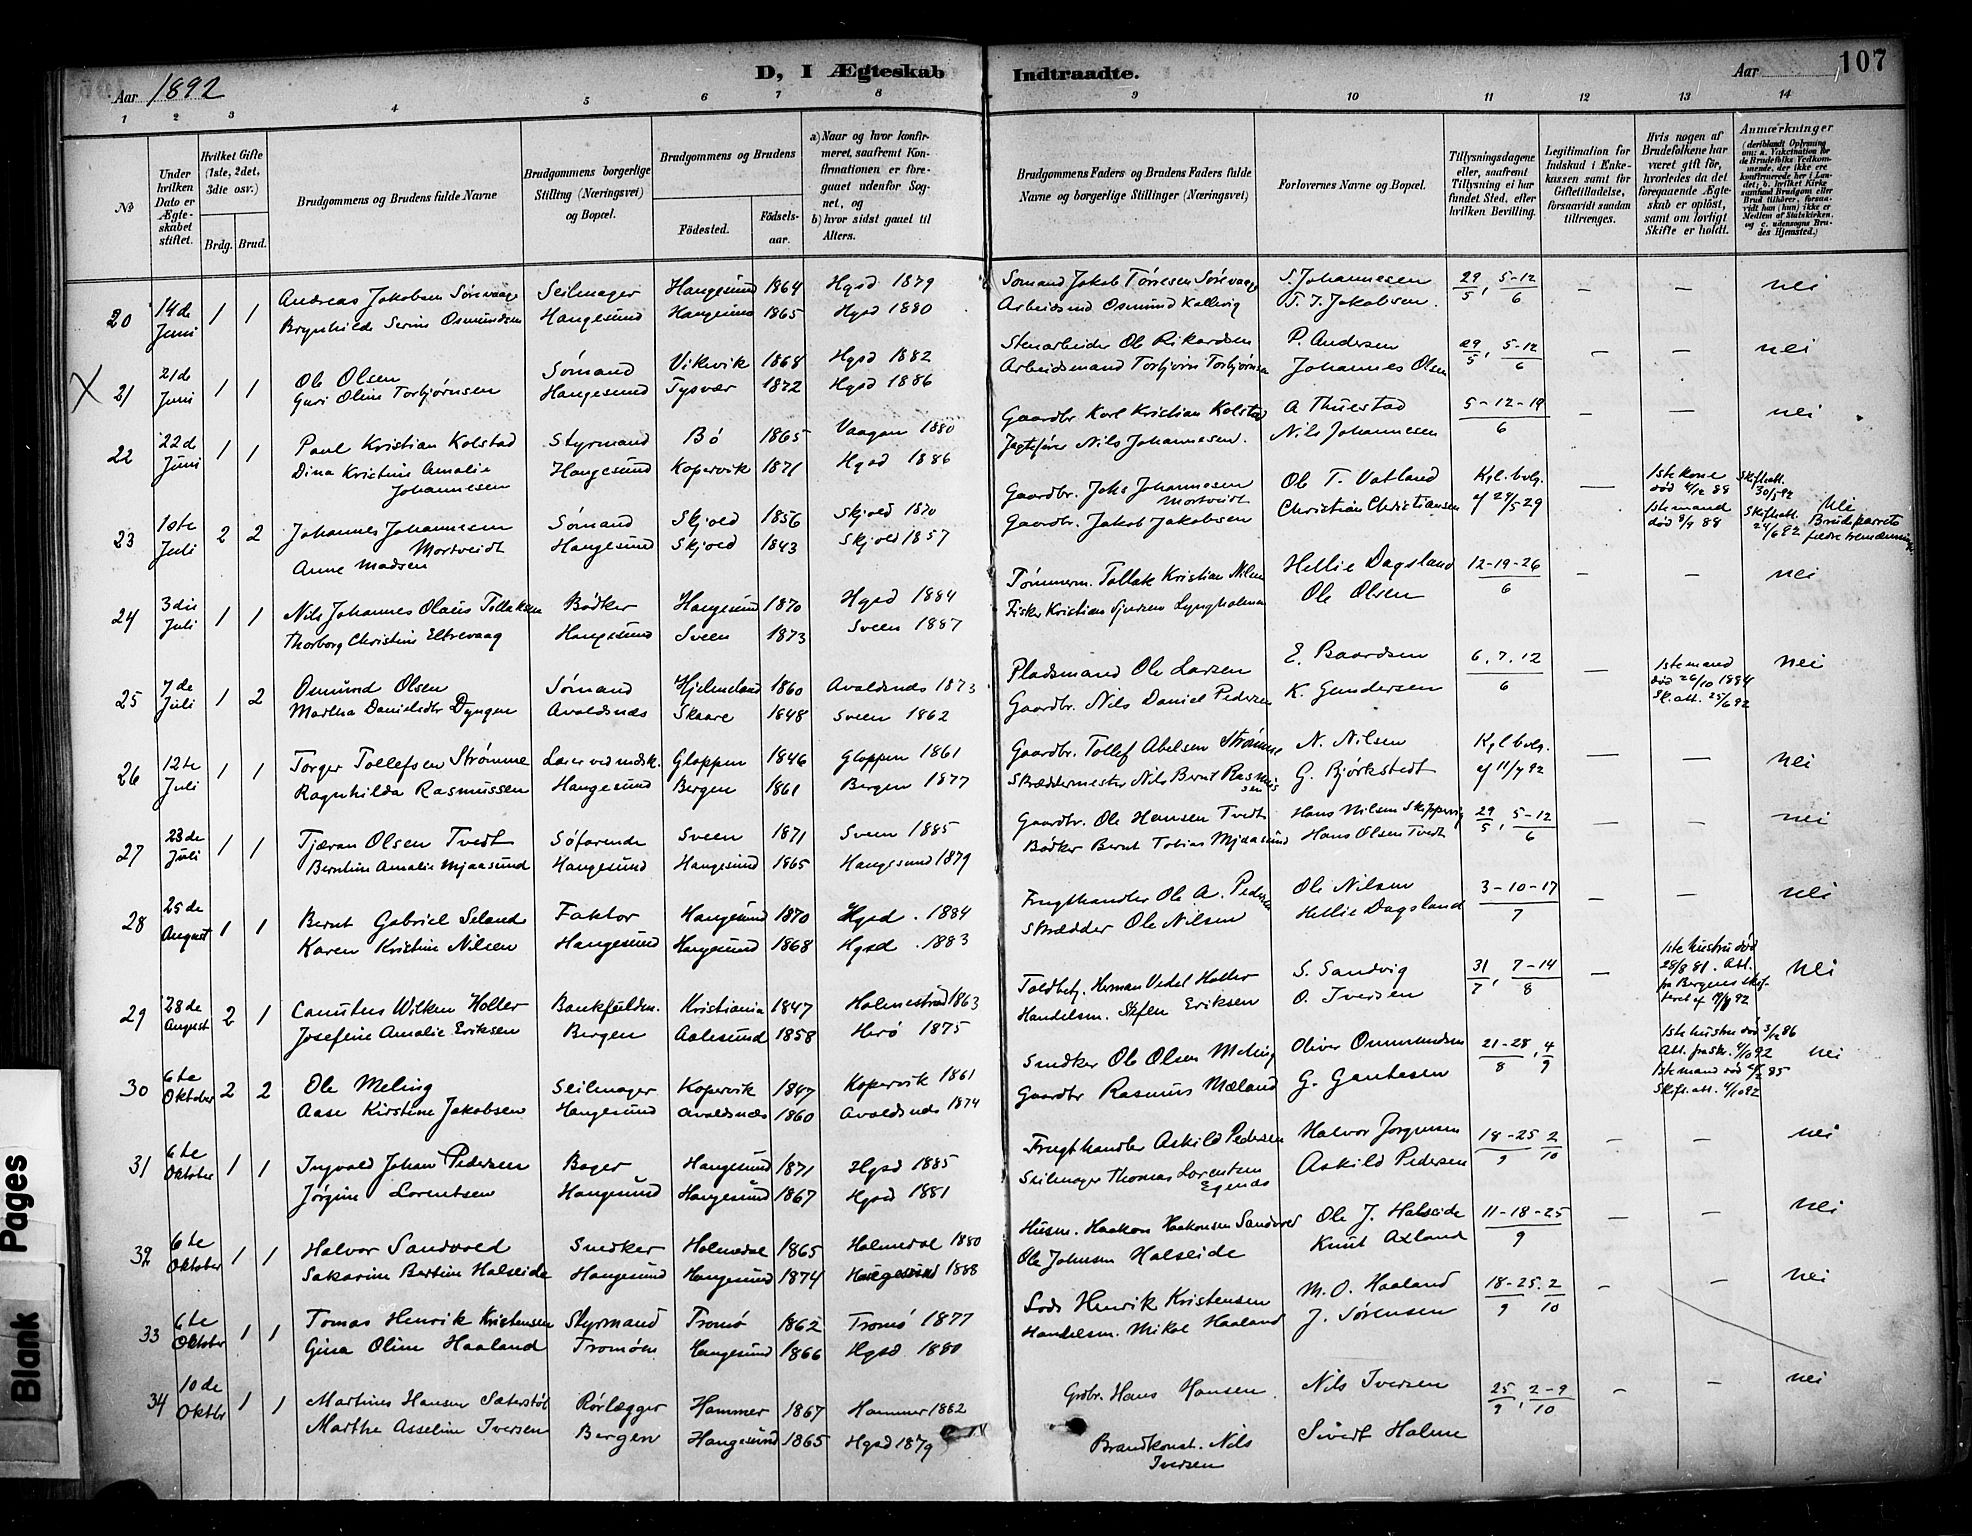 Aar 1892
D, I Ægteskab Indtraadte.
Aar
107
1 2 3 4 5 6 7 8 9 10 11 12 13 14
No
Under hvilken Dato er Ægteskabet stiftet.
Hvilket Gifte (1ste, 2det, 3dte osv.)
Brdg. Brud.
Brudgommens og Brudens fulde Navne
Brudgommens borgerlige Stilling (Næringsvei) og Bopæl.
Brudgommens og Brudens
Fødested.
Fødselsaar.
a) Naar og hvor konfirmeret, saafremt Konfirmationen er foregaaet udenfor Sognet, og
b) hvor sidst gaaet til Alters.
Brudgommens Faders og Brudens Faders fulde Navne og borgerlige Stillinger (Næringsvei)
Forlovernes Navne og Bopæl.
Tillysningsdagene eller, saafremt Tillysning ei har fundet Sted, efter hvilken Bevilling.
Legitimation for Indskud i Enkekassen samt for Giftetilladelse, forsaavidt saadan tiltrænges.
Hvis nogen af Brudefolkene har været gift før, hvorledes da det foregaaende Ægteskab er opløst, samt om lovligt Skifte er holdt.
Anmærkninger (deriblandt Oplysning om: a. Vakcination for de Brudefolks Vedkommende, der ikke ere konfirmerede her i Landet; b. hvilket Kirkesamfund Brudgom eller Brud tilhører, forsaavidt han (hun) ikke er Medlem af Statskirken, og c. udensogns Brudes Hjemsted.)
20 14de Juni 1 1 Andreas Jakobsen Sørevaage Seilmager Haugesund 1864 Hgsd 1879 Sømand Jakob Tørresen Sørevaage S. Johannesen 29/5, 5-12/6 – – nei
Brynhilde Serine Osmundsen Haugesund Haugesund 1865 Hgsd 1880 Arbeidsmd Osmund Kallevig T. J. Jakobsen.
X 21 21de Juni 1 1 Ole Olsen Sømand Vikevik 1868 Hgsd 1882 Stenarbeider Ole Rikardsen P. Andersen 29/5, 5-12/6 – – nei
Guri Oline Torbjørnsen Haugesund Tysvær 1872 Hgsd 1886 Arbeidsmand Torbjørn Torbjørnsen Johannes Olsen
22 22d Juni 1 1 Paul Kristian Kolstad Styrmand Bø 1865 Vaagan 1880 Gaardbr. Karl Kristian Kolstad A Thuestad 5-12-19/6 – – nei
Dina Kristine Amalie Johannesen Haugesund Kopervik 1871 Hgsd 1886 Jagtefører Nils Johannesen. Nils Johannesen
23 1ste Juli 2 2 Johannes Johannesen Mortveidt Sømand Skjold 1856 Skjold 1870 Gaardbr. Johs Johannesen Mortveidt Ole T. Vatland Kgl. bvlg. – 1ste kone død 4/2 88 Skifteatt. 30/5 92 Nei
Anne Madsen Haugesund Skjold 1843 Skjold 1857 Gaardbr. Jakob Jakobsen Christian Christiansen 1ste mand død 8/9 88 Skifteatt. 24/6 92 Brudeparrets
24 3die Juli 1 1 Nils Johannes Olaus Tollaksen Bødker Haugesund 1870 Hgsd 1884 Tømmerm. Tollak Kristian Nilsen Hellie Dagsland 12-19-26/6 – – nei
Thorborg Christine Eltrevaag Haugesund Sveen 1873 Sveen 1887 Fisker Kristian Lyngholmen Ole Olsen
25 7de Juli 1 2 Osmund Olsen Sømand Hjelmeland 1860 Avaldsnes 1873 Pladsmand Ole Larsen E. Baardsen 6, 7, 12/6 – 1ste mand død 26/10 1884 Sk. att. 25/6 92 nei
Martha Danielsdtr Dyngen Avaldsnæs Skaare 1848 Sveen 1862 Gaardbr. Nils Daniel Pedersen K. Gundersen
26 12te Juli 1 1 Torger Tollefsen Strømme Gloppen 1846 Gloppen 1861 Gaardbr. Tollef Abelsen Strømme N. Nilsen Kgl bvlg. – – nei
Ragnhilda Rasmussen Haugesund Bergen 1861 Bergen 1877 Skræddermester Nils Bernt Rasmussen G. Bjørkstedt af 11/7 92
27 23de Juli 1 1 Tjæran Olsen Tvedt Søfarende Sveen 1871 Sveen 1885 Gaardbr. Ole Hansen Tvedt Hans Nilsen Skippevig 29/5, 5-12/6 – – nei
Berntine Amalie Mjaasund Haugesund Haugesund 1865 Haugesund 1879 Bødker Bernt Tobias Mjaasund Hans Olsen Tvedt
28 25de August 1 1 Bernt Gabriel Seland Faktor Haugesund 1870 Hgsd. 1884 Frugthandler Ole A. Pedersen Ole Nilsen 3-10-17/7 – – nei
Karen Kristine Nilsen Haugesund Haugesund 1868 Hgsd. 1883 Skrædder Ole Nilsen Hellie Dagsland
29 28de August 2 1 Canutus Wilken Holler Bankfuldm. Kristiania 1847 Holmestrand 1863 Toldbetj. Herman Vedel Holler S. Sandvig 31/7, 7-14/8 – 1ste hustru død 28/8 81. Att. fra Bergens Skifteret nei
Josefine Amalie Eriksen Bergen Aalesund 1858 Herø 1875 Handelsm. Steffen Eriksen O. Iversen
30 6te Oktober 2 2 Ole Meling Seilmager Kopervik 1847 Kopervik 1861 Snedker Ole Olsen Meling Oliver Ommundsen 21-28/8, 4/9 1ste hustru død 3/12 86 Att. fra Sk. 4/10 92 nei
Aase Kirstine Jakobsen Haugesund Avaldsnæs 1860 Avaldsnes 1874 Gaardbr Rasmus Mæland G. Gautesen 1ste mand død 4/2 85 Skift. att. 4/10 92
31 6te Oktober 1 1 Ingvald Johan Pedersen Bager Haugesund 1871 Hgsd 1885 Frugthandler Askild Pedersen Halvor Jørgensen 18-25/9 2/10 – – nei
Jørgine Lorentsen Haugesund Haugesund 1867 Hgsd 1881 Seilmager Thomas Lorentsen Egenæs Askild Pedersen
32 6te Oktober 1 1 Halvor Sandvold Snedker Holmedal 1865 Holmedal 1880 Husm. Haakon Haakonsen Sandvold Ole J. Halseide 11-18-25/9 – – nei
Sakarine Bertine Halseide Haugesund Haugesund 1874 Haugesund 1888 Ole Johnsen Halseide Knut Axland
33 6te Oktober 1 1 Tomas Henrik Kristensen Styrmand Tromø 1862 Tromø 1877 Lods Henrik Kristensen M. O. Haaland 18-25/9. 2/10 – – nei
Gina Oline Haaland Tromøen Haugesund 1866 Hgsd 1880 Handelsm. Mikal Haaland J. Sørensen
34 10de Oktbr 1 1 Martinus Hansen Sæterstøl Rørlægger Hammer 1867 Hammer 1882 Grdbr. Hans Hansen. Nils Iversen 25/9, 2-9/10 – – nei
Marthe Asseline Iversen Bergen Haugesund 1865 Hgsd 1879 Brandkonst. Nils Iversen Sivert Holme
Blank Pages